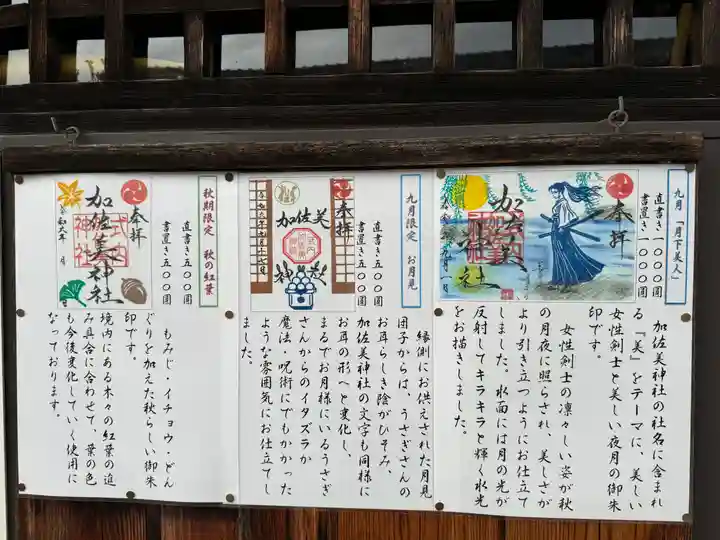 九月「月下美人」
直書き一〇〇〇圓
書置き一〇〇〇圓
奉拝
加佐美
神社
加佐美神社の社名に含まれ
る『美』をテーマに、美しい
女性剣士と美しい夜月の御朱
印です。
女性剣士の凛々しい姿が秋
の月夜に照らされ、美しさが
より引き立つようにお仕立て
しました。水面には月の光が
反射してキラキラと輝く水光
をお描きしました。
九月限定 お月見
直書き五〇〇圓
書置き五〇〇圓
奉拝
加佐美
神社
縁側にお供えされた月見
団子からは、うさぎさんの
お耳らしき陰がひそみ、
加佐美神社の文字も同様に
お耳の形へと変化し、
まるでお月様にいるうさぎ
さんからのイタズラか
魔法・呪術にでもかかった
ような雰囲気にお仕立てし
ました。
秋期限定 秋の紅葉
直書き五〇〇圓
書置き五〇〇圓
奉拝
加佐美神社
式内
神社
令和六年 月
もみじ・イチョウ・どん
ぐりを加えた秋らしい御朱
印です。
境内にある木々の紅葉の進
み具合に合わせて、葉の色
も今後変化していく使用に
なっております。